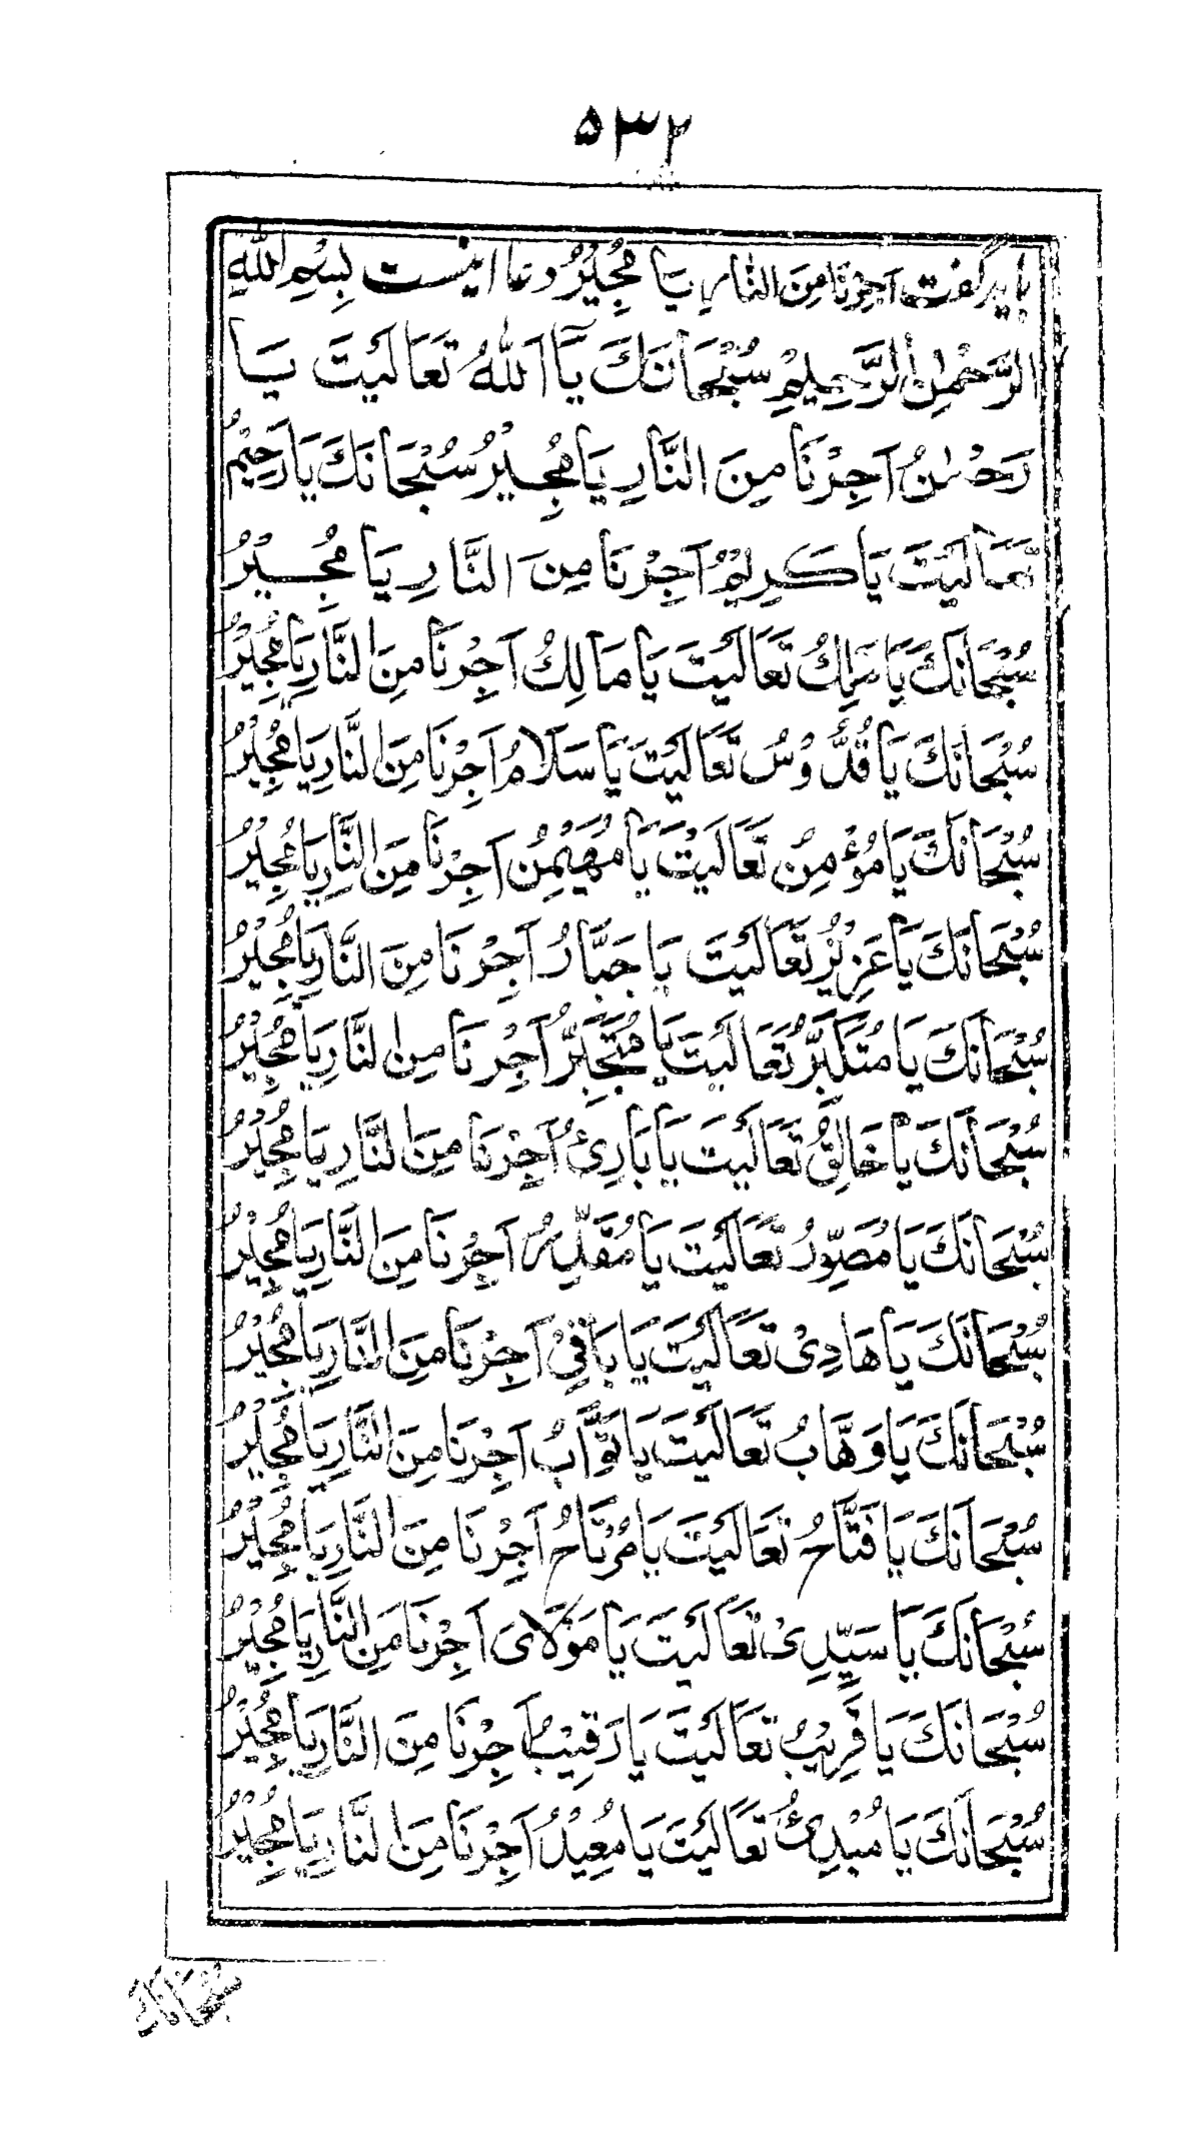 ۵۳۲
باید گفت اَجِرْنَا مِنَ النَّارِ یَا مُجِیْرُ ودعا اینست بِسْمِ اللّٰهِ
الرَّحْمٰنِ الرَّحِیْمِ سُبْحَانَكَ یَآ اَللّٰهُ تَعَالَیْتَ یَا
رَحْمٰنُ اَجِرْنَا مِنَ النَّارِ یَا مُجِیْرُ سُبْحَانَكَ یَا رَحِیْمُ
تَعَالَیْتَ یَا كَرِیْمُ اَجِرْنَا مِنَ النَّارِ یَا مُجِیْرُ
سُبْحَانَكَ یَا مَلِكُ تَعَالَیْتَ یَا مَالِكُ اَجِرْنَا مِنَ النَّارِ یَا مُجِیْرُ
سُبْحَانَكَ یَا قُدُّوْسُ تَعَالَیْتَ یَا سَلَامُ اَجِرْنَا مِنَ النَّارِ یَا مُجِیْرُ
سُبْحَانَكَ یَا مُؤْمِنُ تَعَالَیْتَ یَا مُهَیْمِنُ اَجِرْنَا مِنَ النَّارِ یَا مُجِیْرُ
سُبْحَانَكَ یَا عَزِیْزُ تَعَالَیْتَ یَا جَبَّارُ اَجِرْنَا مِنَ النَّارِ یَا مُجِیْرُ
سُبْحَانَكَ یَا مُتَكَبِّرُ تَعَالَیْتَ یَا مُتَجَبِّرُ اَجِرْنَا مِنَ النَّارِ یَا مُجِیْرُ
سُبْحَانَكَ یَا خَالِقُ تَعَالَیْتَ یَا بَارِئُ اَجِرْنَا مِنَ النَّارِ یَا مُجِیْرُ
سُبْحَانَكَ یَا مُصَوِّرُ تَعَالَیْتَ یَا مُقَدِّرُ اَجِرْنَا مِنَ النَّارِ یَا مُجِیْرُ
سُبْحَانَكَ یَا هَادِیْ تَعَالَیْتَ یَا بَاقِیْ اَجِرْنَا مِنَ النَّارِ یَا مُجِیْرُ
سُبْحَانَكَ یَا وَهَّابُ تَعَالَیْتَ یَا تَوَّابُ اَجِرْنَا مِنَ النَّارِ یَا مُجِیْرُ
سُبْحَانَكَ یَا فَتَّاحُ تَعَالَیْتَ یَا مُرْتَاحُ اَجِرْنَا مِنَ النَّارِ یَا مُجِیْرُ
سُبْحَانَكَ یَا سَیِّدِیْ تَعَالَیْتَ یَا مَوْلَایَ اَجِرْنَا مِنَ النَّارِ یَا مُجِیْرُ
سُبْحَانَكَ یَا قَرِیْبُ تَعَالَیْتَ یَا رَقِیْبُ اَجِرْنَا مِنَ النَّارِ یَا مُجِیْرُ
سُبْحَانَكَ یَا مُبْدِئُ تَعَالَیْتَ یَا مُعِیْدُ اَجِرْنَا مِنَ النَّارِ یَا مُجِیْرُ
سُبْحَانَكَ